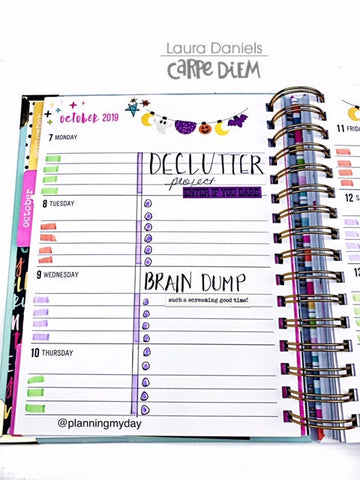 Laura Daniels
CARPE DiEM
OCTOBER 2019
7 MONDAY
DECLUTTER
project
ENTER IF YOU DARE
october
8 TUESDAY
9 WEDNESDAY
BRAIN DUMP
such a screaming good time!
10 THURSDAY
@planningmyday
11 FRIDAY